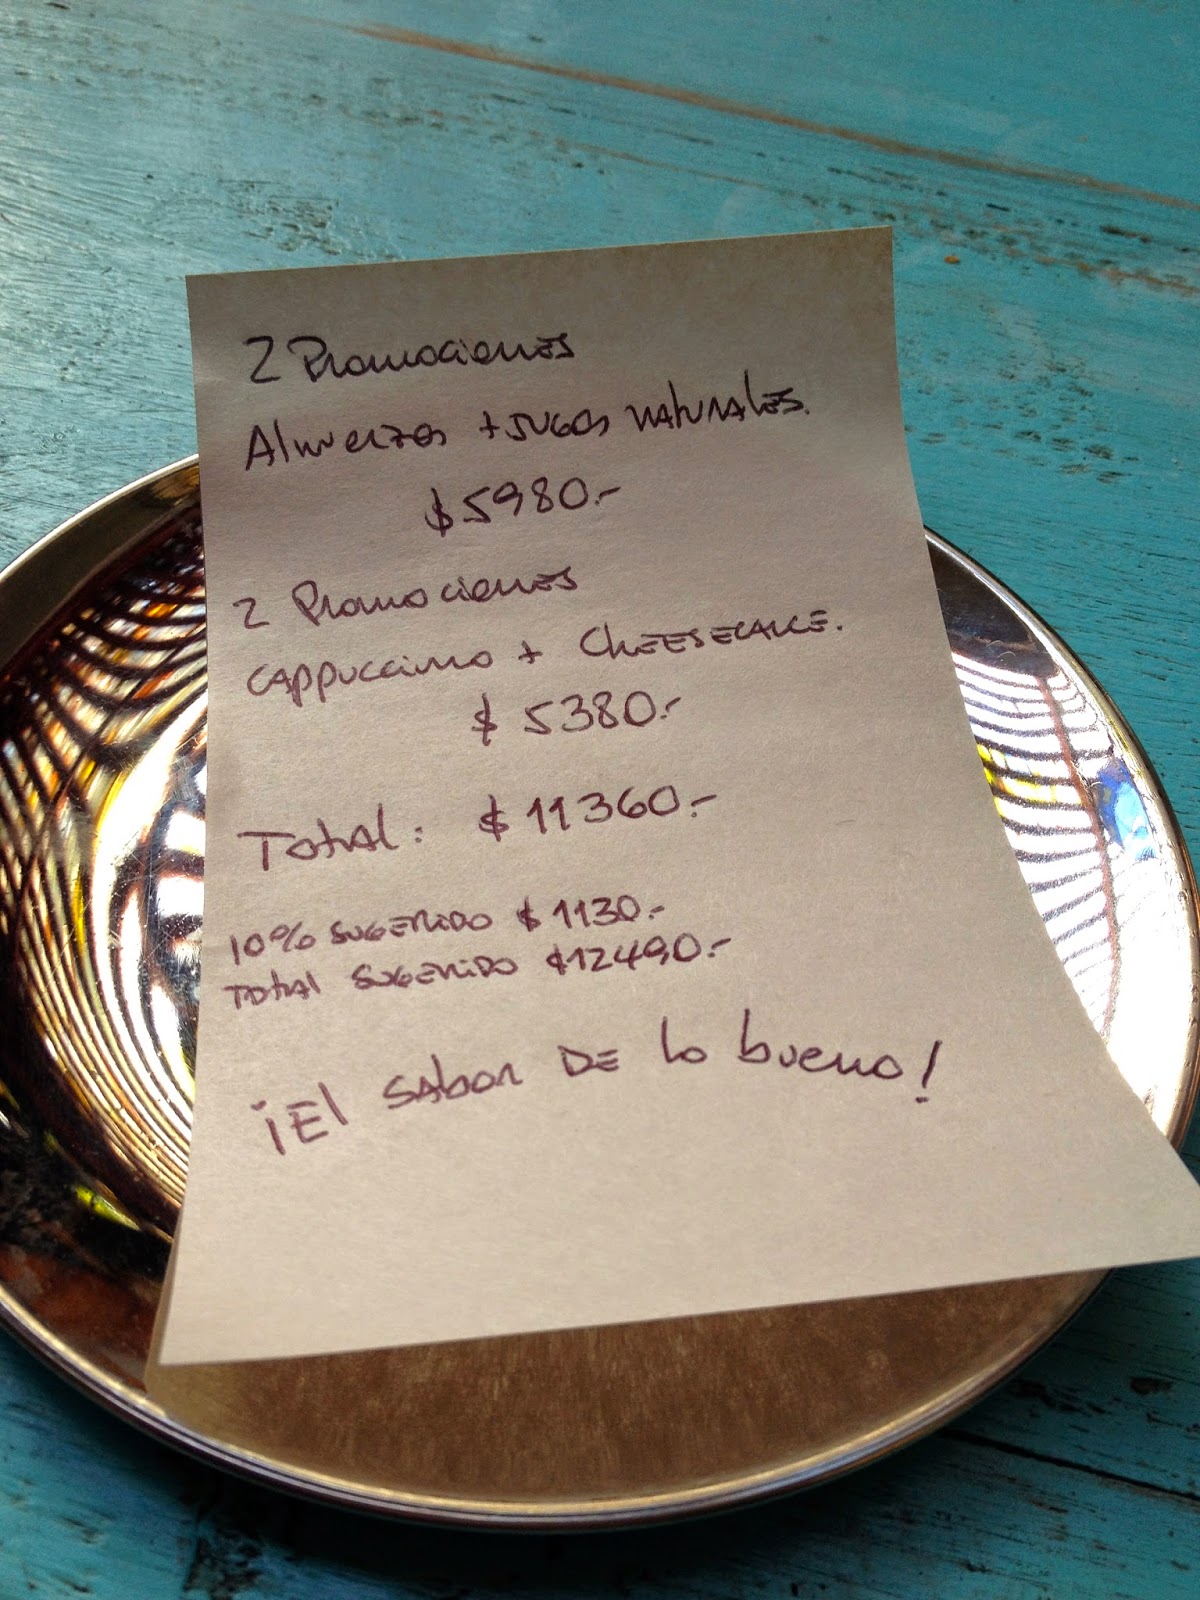 2 Promociones
Almuerzos + jugos naturales.
$5980.-
2 Promociones
cappuccino + Cheesecake.
$ 5380.-
Total: $11360.-
10% sugerido $1130.-
Total sugerido $12490.-
¡El sabor de lo bueno!